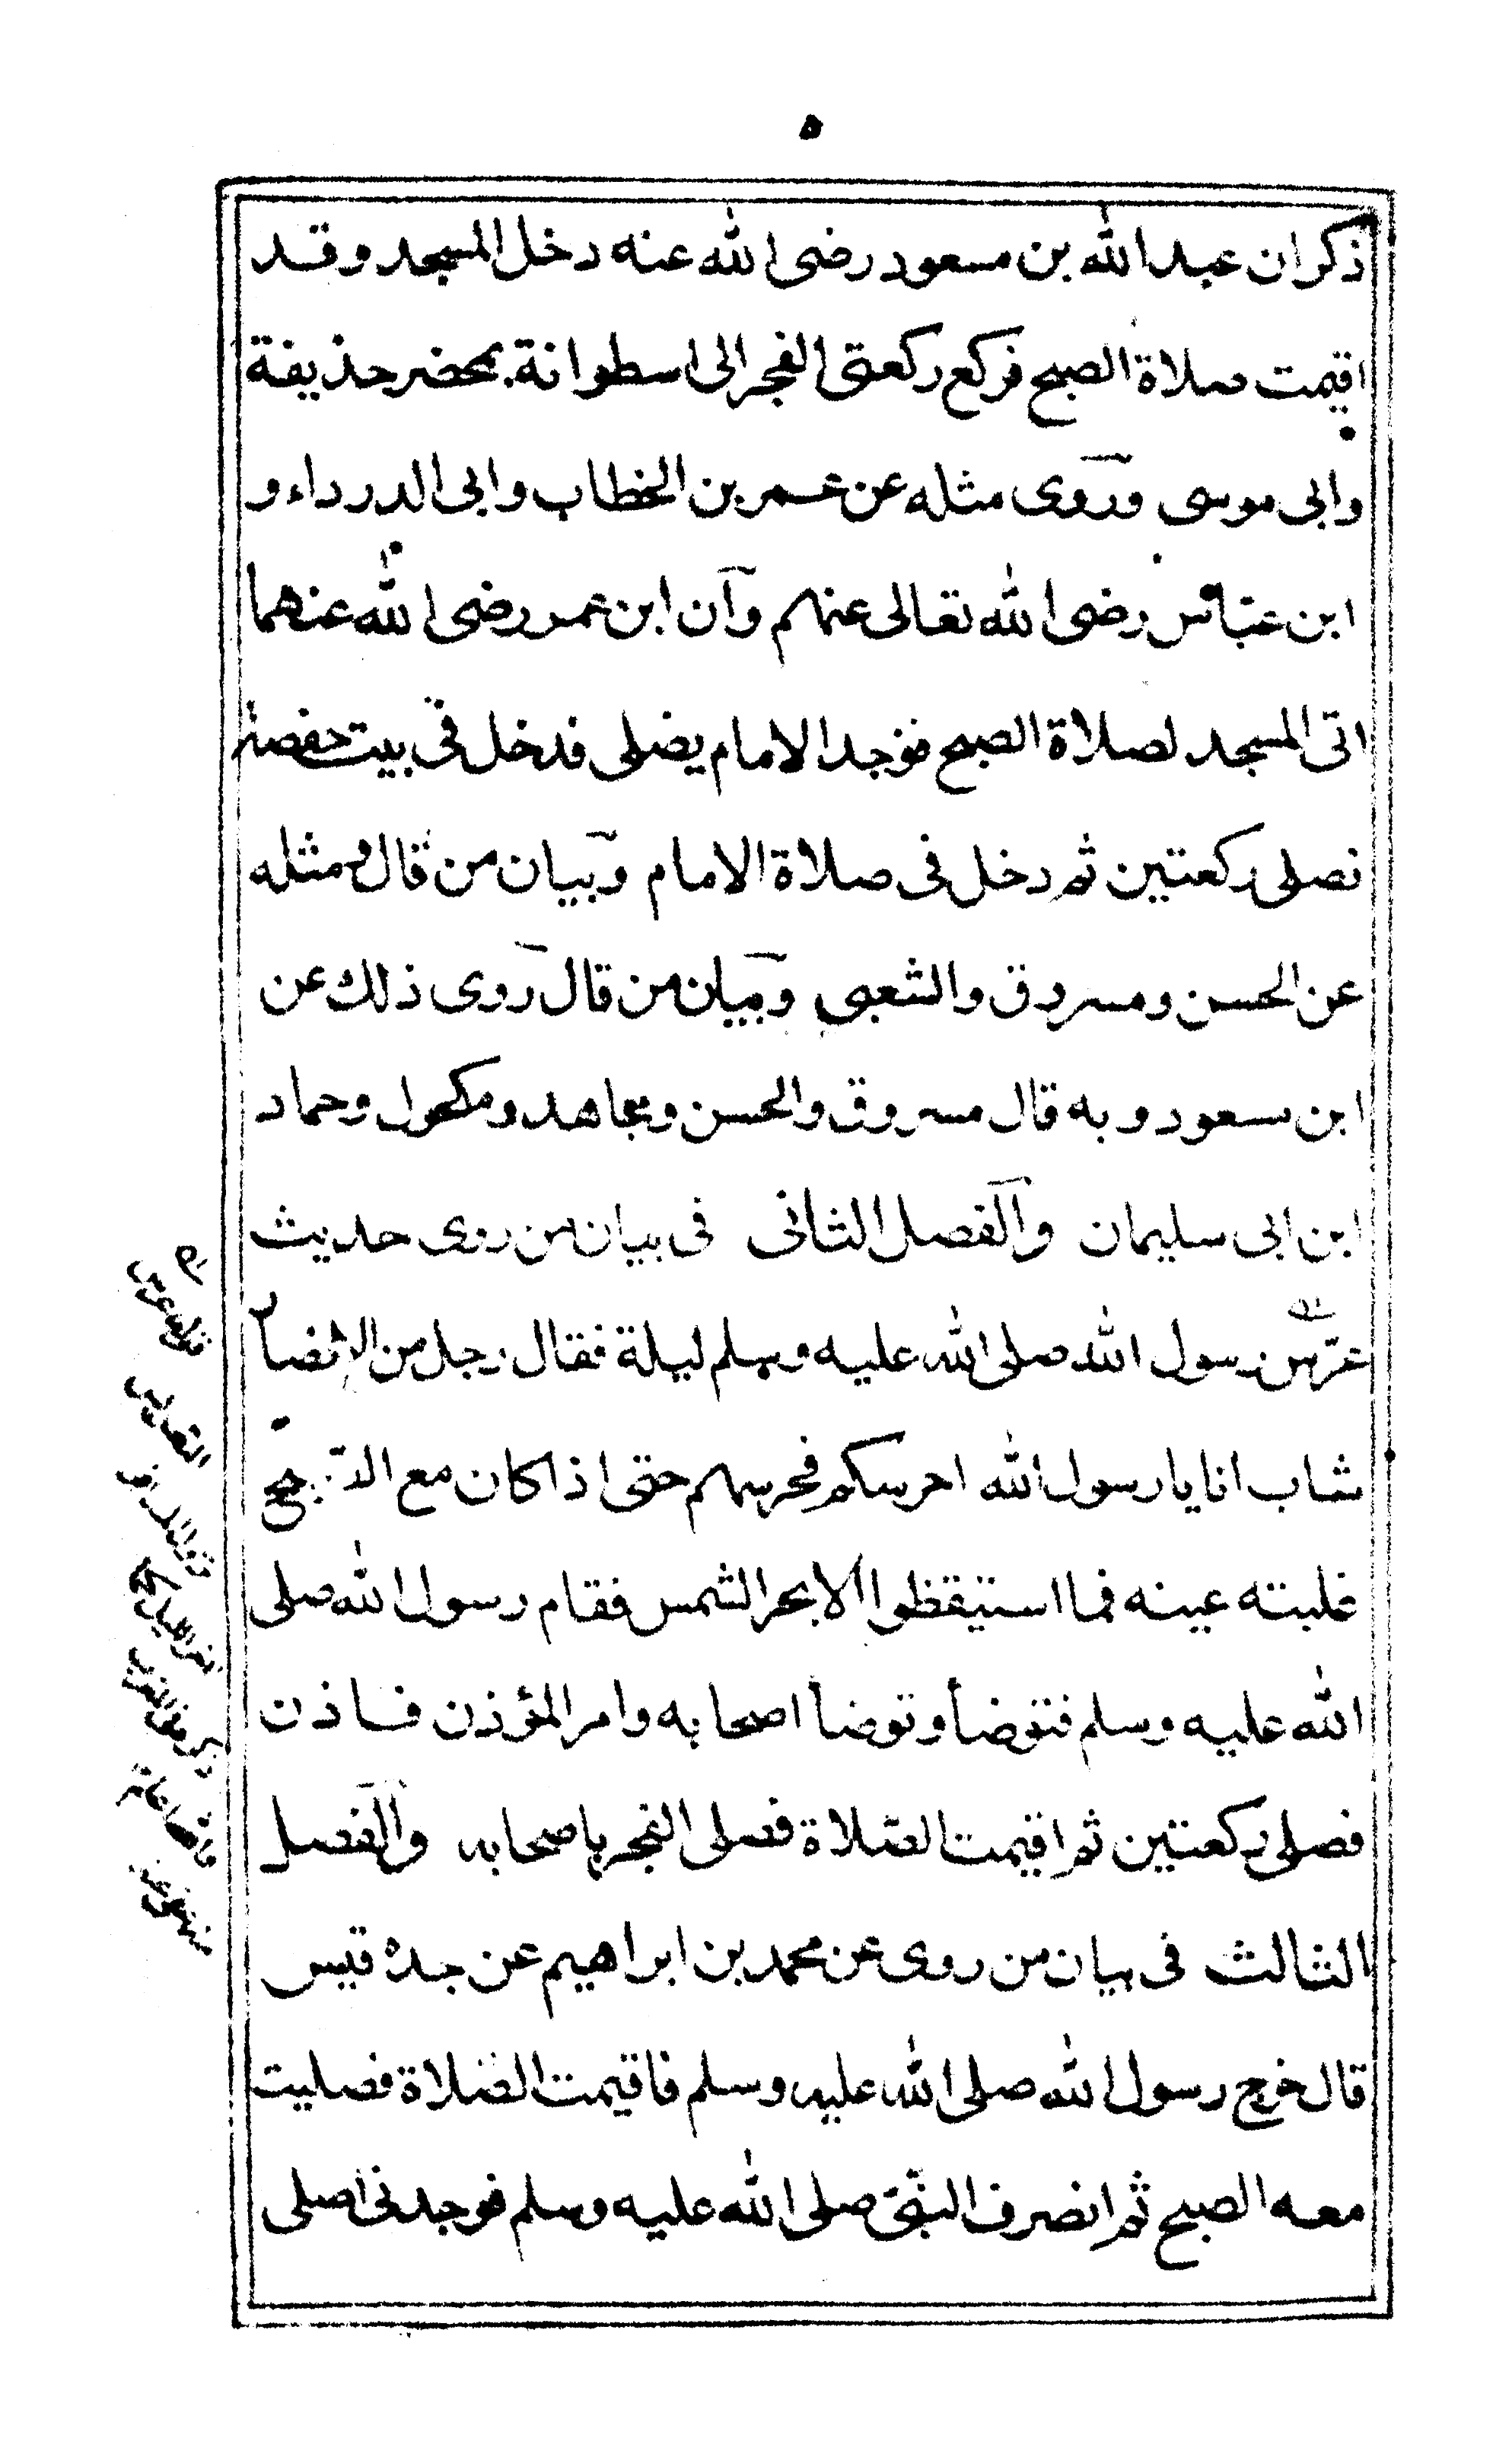 ٥
ذكر ان عبد الله بن مسعود رضى الله عنه دخل المسجد وقد
اقيمت صلاة الصبح فركع ركعتى الفجر الى اسطوانة بمحضر حذيفة
وابى موسى وروى مثله عن عمر بن الخطاب وابى الدرداء و
ابن عباس رضى الله تعالى عنهم وان ابن عمر رضى الله عنهما
اتى المسجد لصلاة الصبح فوجد الامام يصلى فدخل فى بيت حفصة
فصلى ركعتين ثم دخل فى صلاة الامام وبيان من قال ومثله
عن الحسن ومسروق والشعبى وبيان من قال روى ذلك عن
ابن مسعود وبه قال مسروق والحسن ومجاهد ومكحول وحماد
ابن ابى سليمان والفصل الثانى فى بيان من روى حديث
عرس رسول الله صلى الله عليه وسلم ليلة فقال رجل من الانصار
شاب انا يا رسول الله احرسكم فحرسهم حتى اذا كان مع الصبح
غلبته عينه فما استيقظوا الا بحر الشمس فقام رسول الله صلى
الله عليه وسلم فتوضأ وتوضأ اصحابه وامر المؤذن فاذن
فصلى ركعتين ثم اقيمت الصلاة فصلى الفجر باصحابه والفصل
الثالث فى بيان من روى عن محمد بن ابراهيم عن جده قيس
قال خرج رسول الله صلى الله عليه وسلم فاقيمت الصلاة فصليت
معه الصبح ثم انصرف النبى صلى الله عليه وسلم فوجدنى اصلى